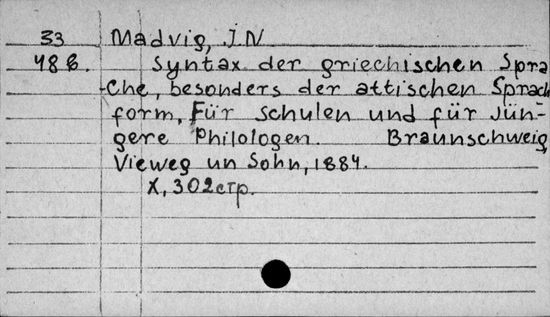 33 Madvig, J.N
48 B. Syntax der griechischen Spra
-che, besonders der attischen Sprach
form, Für Schulen und für jün-
gere Philologen. Braunschweig,
Vieweg un Sohn, 1884.
X, 302 стр.